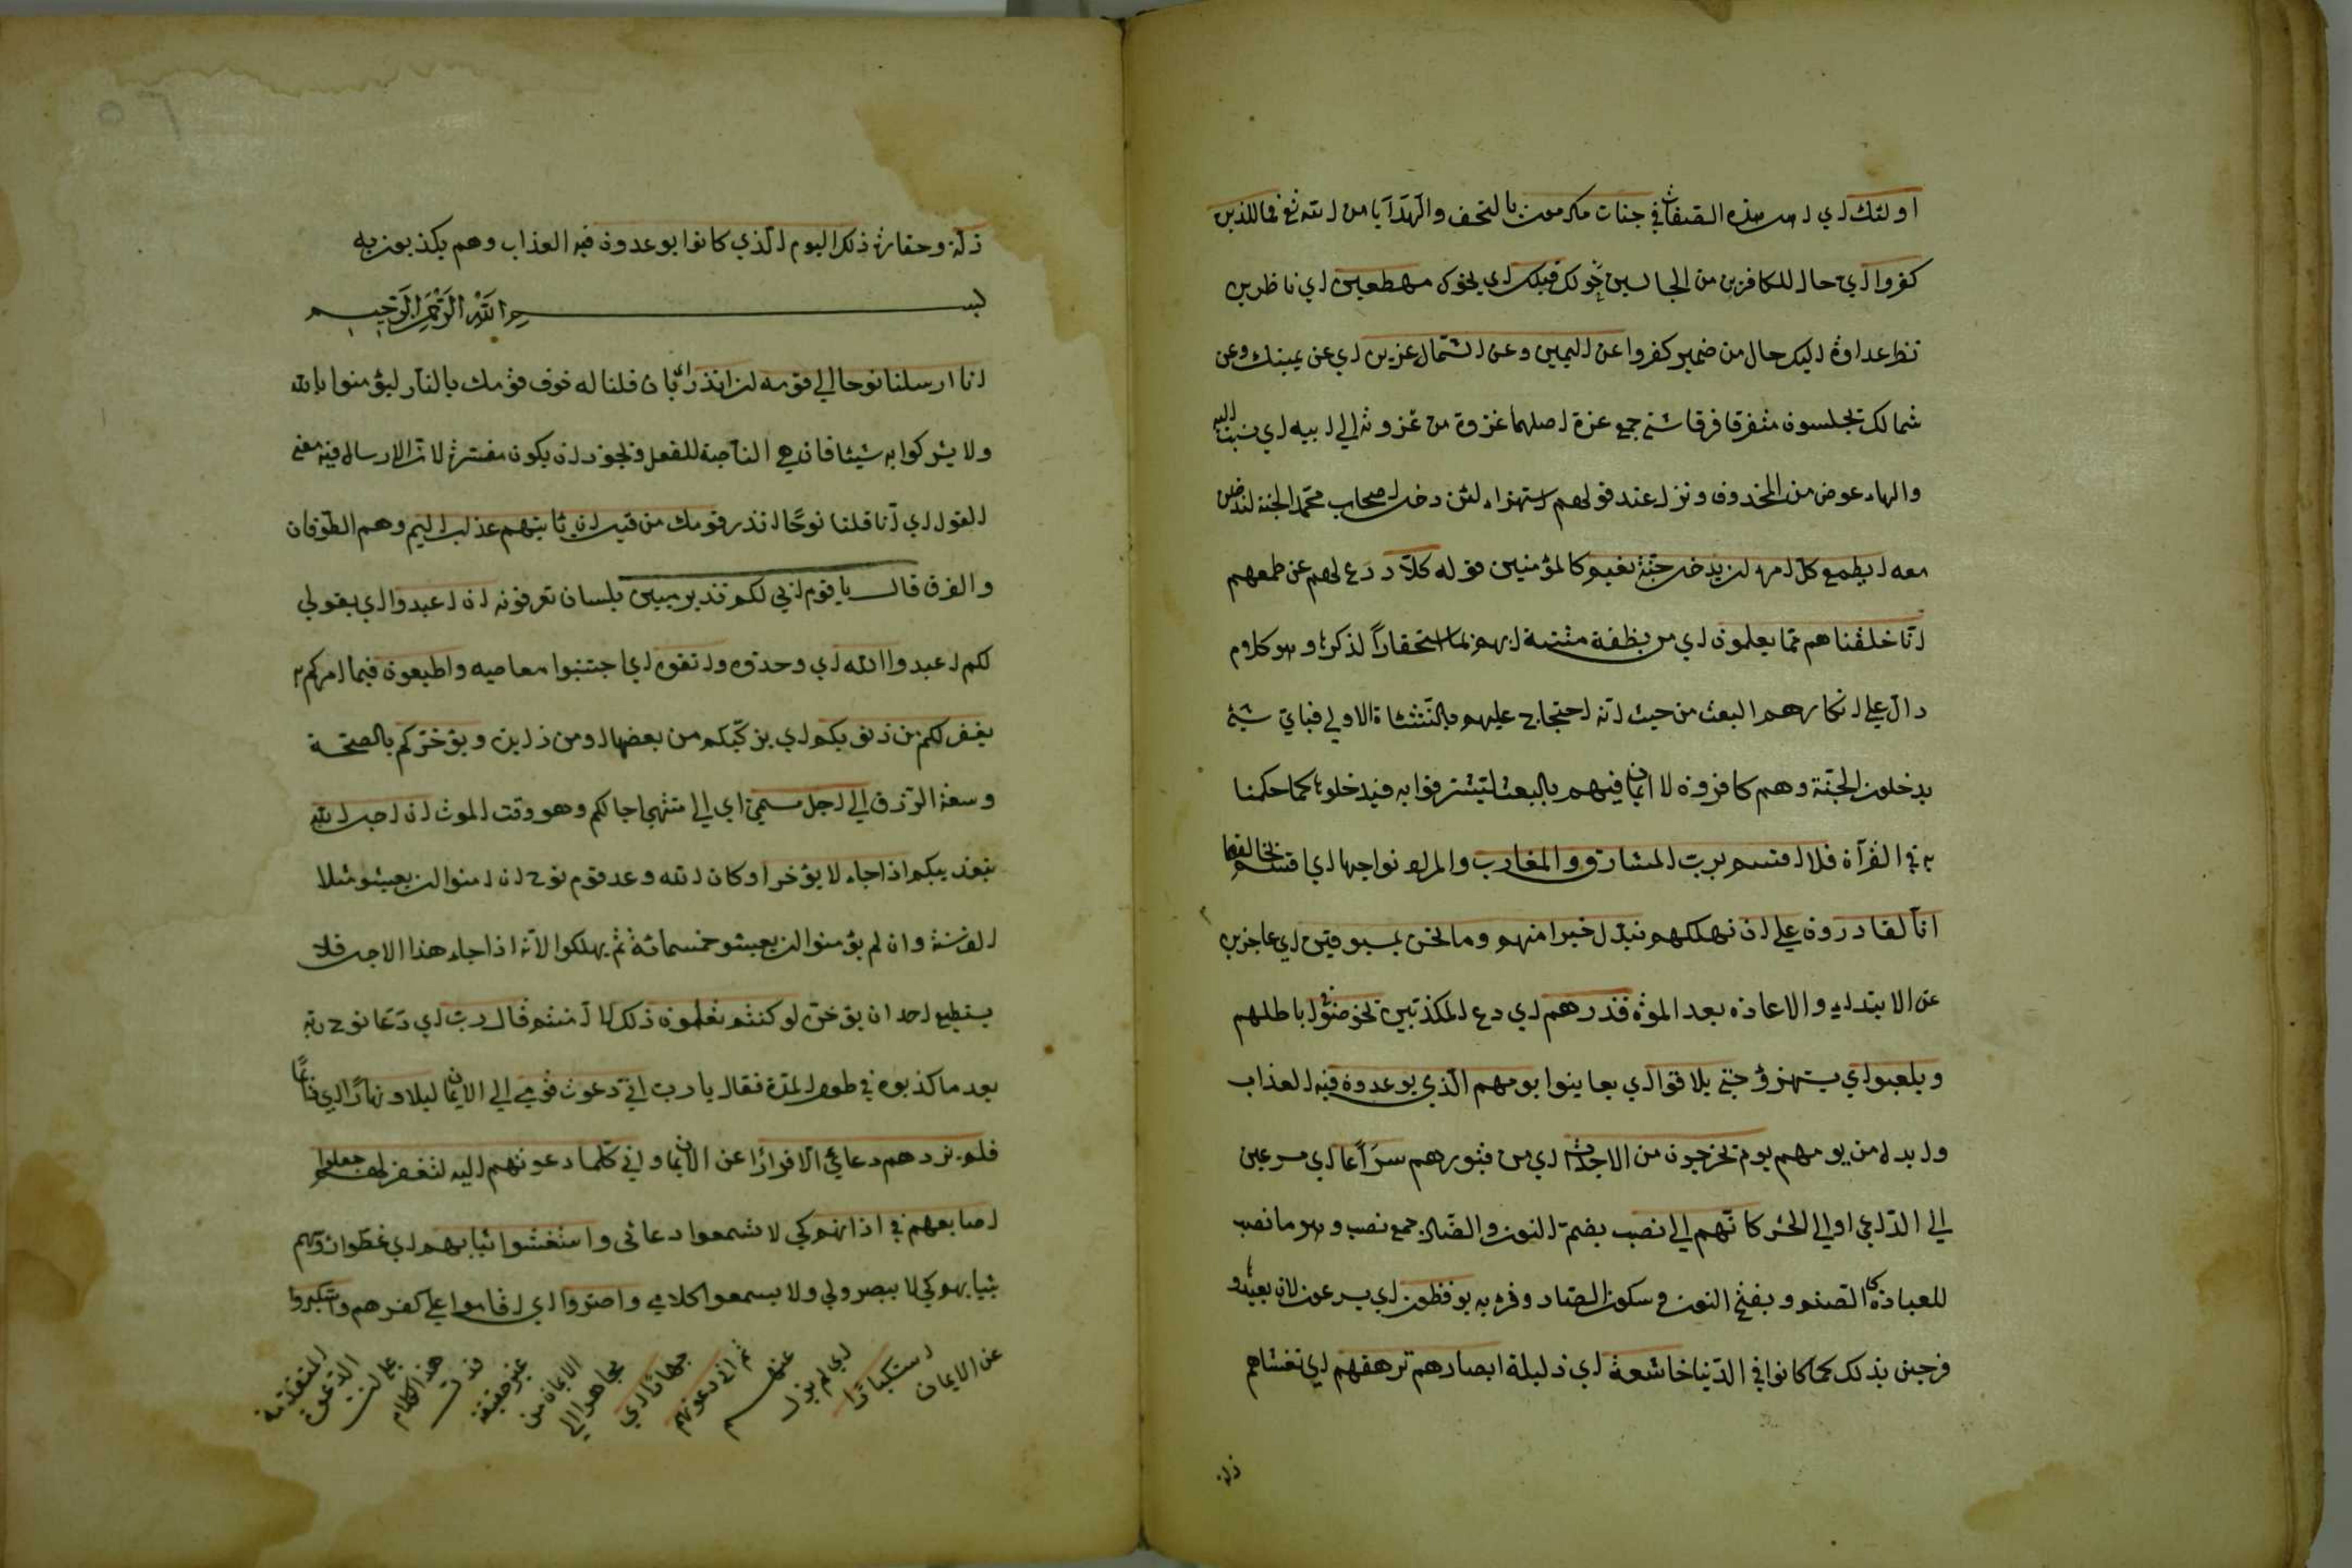 اولئك اي اهل هذه الصفات في جنات مكرمون بالتحف والهدايا من الله تع فما للذين
كفروا اي حال للكافرين من الجالسين حولك قبلك اي نحوك مهطعين اي ناظرين
نظر عداوة اليك حال من ضمير كفروا عن اليمين وعن الشمال عزين اي عن يمينك وعن
شمالك يجلسون متفرقا فرقا شتى جمع عزة اصلها عزوة من عزوته الى ابيه اي نسبته اليه
والهاء عوض من المحذوف ونزل عند قولهم استهزاء لئن دخل اصحاب محمد الجنة لندخلن
معه ايطمع كل امرء ان يدخل جنة نعيم كالمؤمنين قوله كلا ردع لهم عن طمعهم
انا خلقناهم مما يعلمون اي من نطفة منتنة ابهم استحقارا لذكرها وهو كلام
دال على انكارهم البعث من حيث انه احتجاج عليهم بالنشاة الاولى فباي شيء
يدخلون الجنة وهم كافرون لا ايمان فيهم بالبعث ليتشرفوا به فيدخلوها كما حكمنا
به في القرآن فلا اقسم برب المشارق والمغارب والمراد نواحيها اي اقسم
انا لقادرون على ان نهلكهم نبدل خيرا منهم وما نحن بمسبوقين اي عاجزين
عن الابتداء والاعادة بعد الموت فذرهم اي دع المكذبين يخوضوا في اباطلهم
ويلعبوا اي يستهزؤ حتى يلاقوا اي يعاينوا يومهم الذي يوعدون فيه العذاب
وابدل من يومهم يوم يخرجون من الاجداث اي من قبورهم سراعا اي مسرعين
الى الداعي او الى الحشر كانهم الى نصب بضم النون والصاد جمع نصب وهو ما نصب
للعبادة كالصنم وبفتح النون وسكون الصاد وقرء به يوفضون اي يسرعون لان يعبدو
فرحين بذلك كما كانوا في الدنيا خاشعة اي ذليلة ابصارهم ترهقهم اي تغشاهم
ذلة
ذلة وحقارة ذلك اليوم الذي كانوا يوعدون فيه العذاب وهم يكذبون به
بسم الله الرحمن الرحيم
انا ارسلنا نوحا الى قومه ان انذر اي بان قلنا له خوف قومك بالنار ليؤمنوا بالله
ولا يشركوا به شيئا فان هي الناصبة للفعل ويجوز ان يكون مفسرة لان الارسال فيه معنى
القول اي انا قلنا نوحا انذر قومك من قبل ان ياتيهم عذاب اليم وهم الطوفان
والغرق قال يا قوم اني لكم نذير مبين بلسان تعرفونه ان اعبدوا اي بقولي
لكم اعبدوا الله اي وحدوه واتقوه اي اجتنبوا معاصيه واطيعون فيما امركم به
يغفر لكم من ذنوبكم اي يزكيكم من بعضها او من زائدة ويؤخركم بالصحة
وسعة الرزق الى اجل مسمى اي الى منتهى اجالكم وهو وقت الموت ان اجل الله
بتعذيبكم اذا جاء لا يؤخر او كان الله وعد قوم نوح ان امنوا ان يعيشو مثلا
الف سنة وان لم يؤمنوا ان يعيشو خمسمائة ثم يهلكوا لانه اذا جاء هذا الاجل فلا
يستطيع احد ان يؤخره لو كنتم تعلمون ذلك لا امنتم قال رب اي دعا نوح ربه
بعد ما كذبوه في طول المدة فقال يا رب اني دعوت قومي الى الايمان ليلا ونهارا اي دائما
فلم يزدهم دعائي الا فرارا عن الايمان واني كلما دعوتهم اليه لتغفر لهم جعلوا
اصابعهم في اذانهم كي لا يسمعوا دعائي واستغشوا ثيابهم اي غطوا رؤسهم
بثيابهم كي لا يبصروني ولا يسمعوا كلامي واصروا اي اقاموا على كفرهم واستكبروا
عن الايمان
استكبارا
اي لم يزل
عنهم
ثم اني دعوتهم
جهارا اي
مجاهرا الى
الايمان من
غير خفية
هذا الكلام
على
الدعوة
المتقدمة